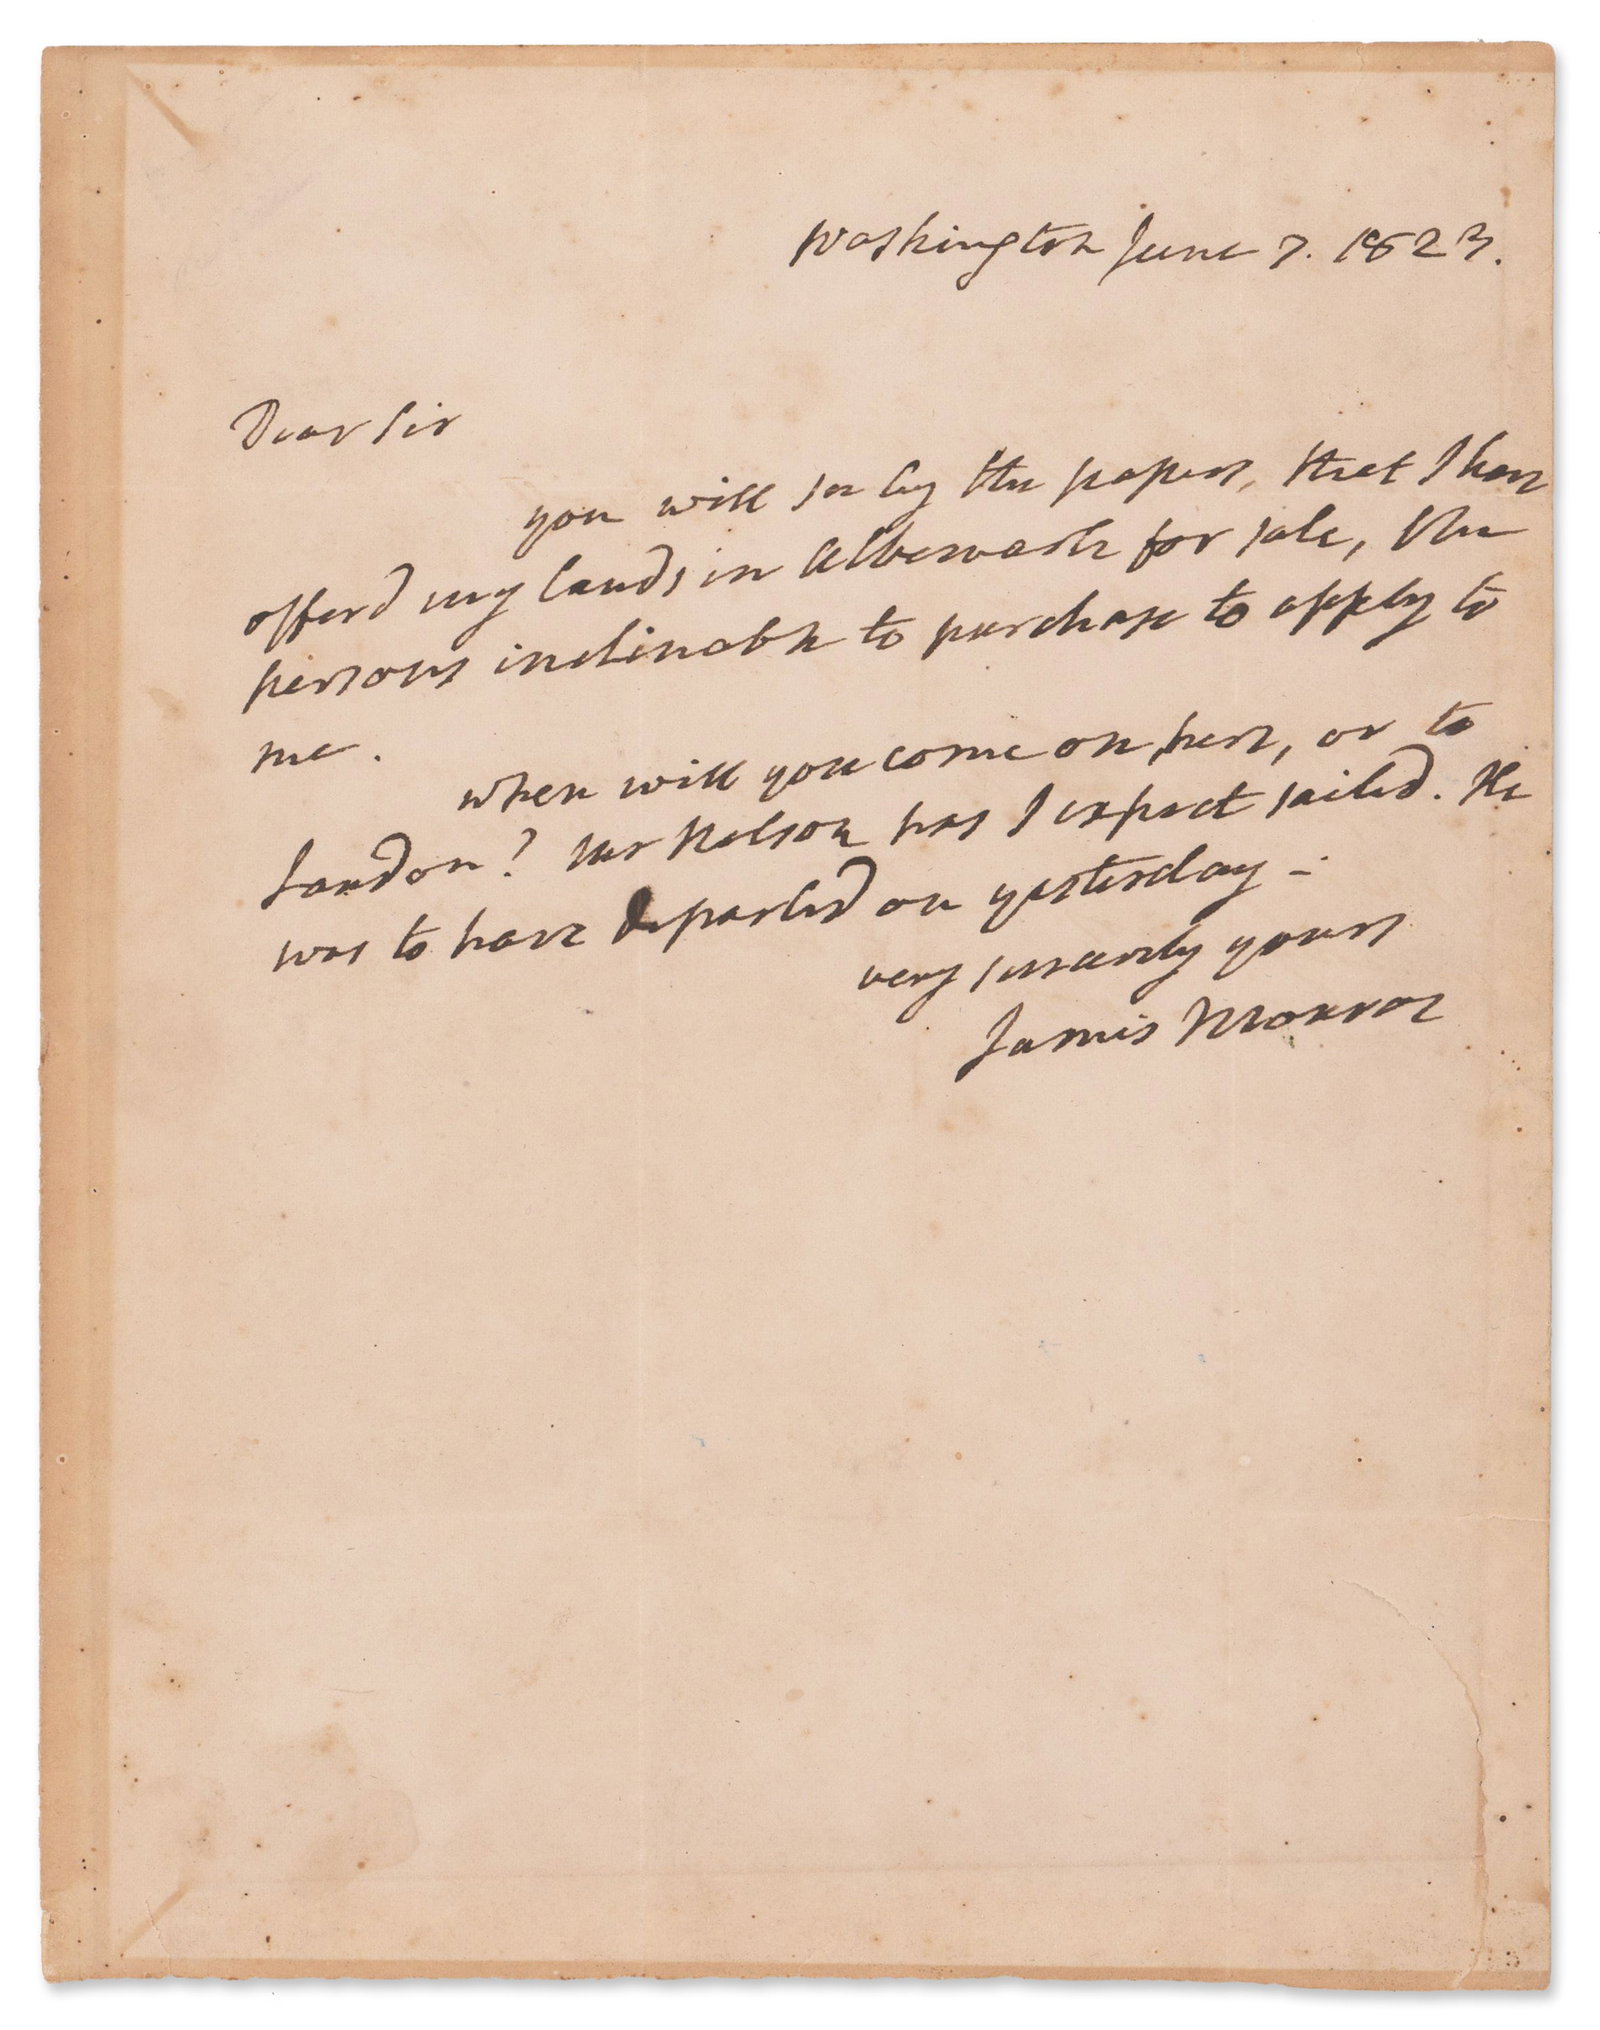 Washington June 7. 1823.
Dear Sir
you will see by the papers, that I have
offerd my lands in Albemarle for sale, the
persons inclinable to purchase to apply to
me.
when will you come on here, or to
Loudon? Mr Nelson has I expect sailed. He
was to have departed on yesterday -
very sincerely yours
James Monroe